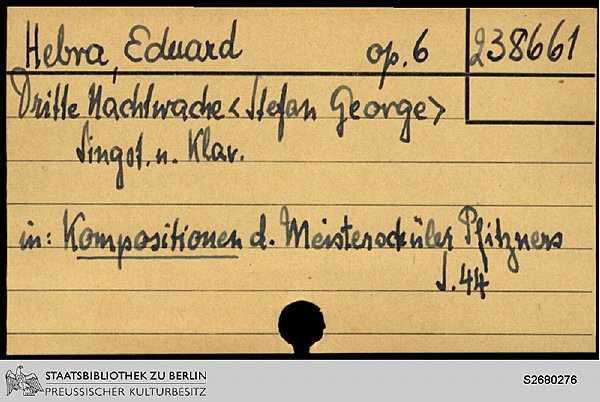 Hebra, Eduard op. 6 238661
Dritte Nachtwache <Stefan George>
Singst. u. Klav.
in: Kompositionen d. Meisterschüler Pfitzners
S. 44
STAATSBIBLIOTHEK ZU BERLIN
PREUSSISCHER KULTURBESITZ
S2680276